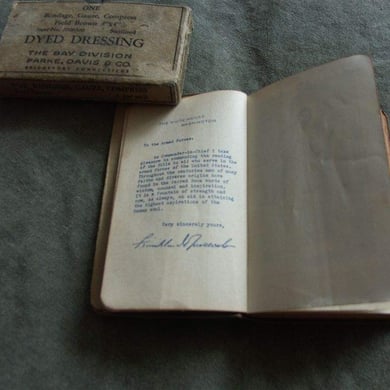 ONE
Bandage, Gauze, Compress
Field Brown
Sterilized
DYED DRESSING
THE BAY DIVISION
PARKE, DAVIS & CO.
BRIDGEPORT, CONNECTICUT
BANDAGE, GAUZE, COMPRESS
THE WHITE HOUSE
WASHINGTON
To the Armed Forces:
As Commander-in-Chief I take
pleasure in commending the reading
of the Bible to all who serve in the
armed forces of the United States.
Throughout the centuries men of many
faiths and diverse origins have
found in the Sacred Book words of
wisdom, counsel and inspiration.
It is a fountain of strength and
now, as always, an aid in attaining
the highest aspirations of the
human soul.
Very sincerely yours,
Franklin D Roosevelt